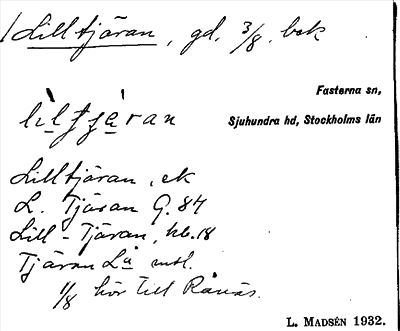 Lilltjäran, gd. 3/8 bebr
Fasterna sn,
Sjuhundra hd, Stockholms län
Lilltjäran, ek
L. Tjäran G. 84
Lill-Tjäran, hb. 18
Tjäran La mtl.
1/8 hör till Rånäs.
L. MADSÉN 1932.